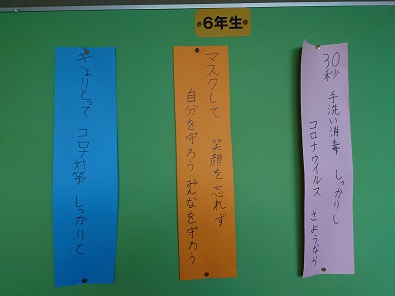 6年生
30秒 手洗い消毒 しっかりし
コロナウイルス さようなら
マスクして 笑顔を忘れず
自分を守ろう みんなを守ろう
きょりとって コロナ対策 しっかりと